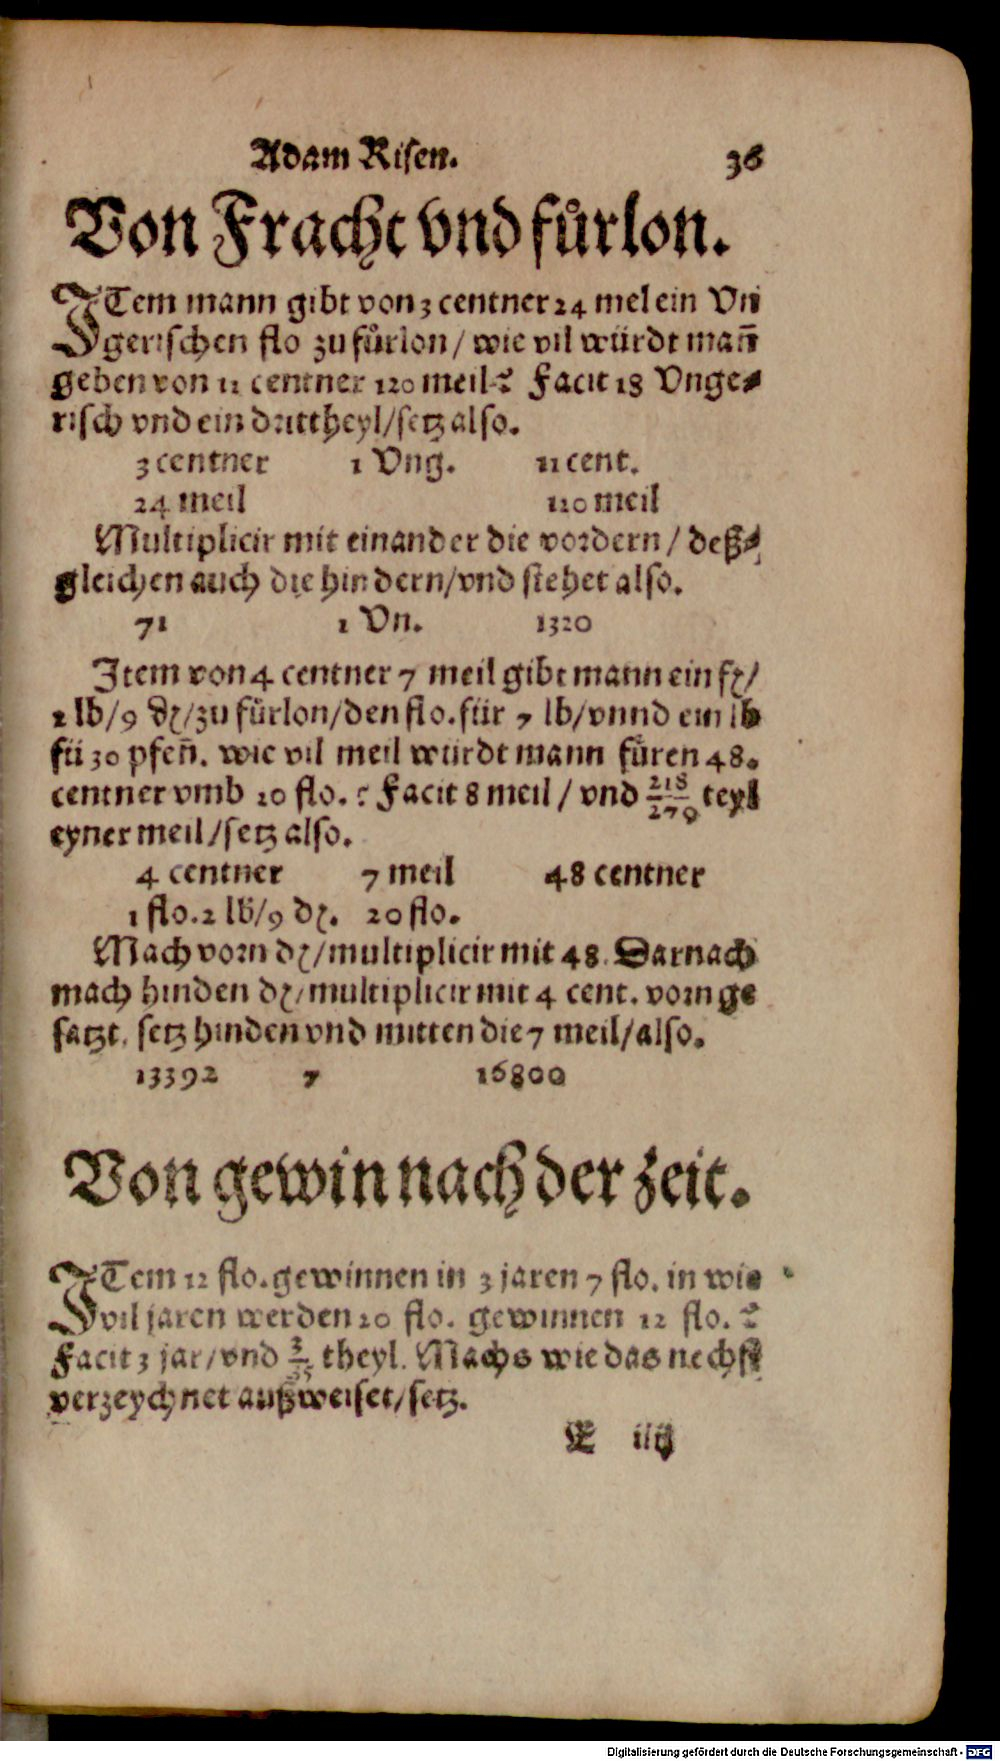 Adam Risen. 36
Von Fracht vnd fůrlon.
ITem mann gibt von 3 centner 24 mel ein Vn
gerischen flo zu fůrlon / wie vil würdt man̄
geben von 11 centner 120 meil? Facit 18 Vnge⸗
risch vnd ein drittheyl/setz also.
3 centner 1 Vng. 11 cent.
24 meil 120 meil
Multiplicir mit einander die vordern / deß⸗
gleichen auch die hindern/vnd stehet also.
71 1 Vn. 1320
Item von 4 centner 7 meil gibt mann ein fl/
2 lb/9 dɀ/zu fůrlon/den flo. für 7 lb/vnnd ein lb
fü 30 pfen̄. wie vil meil würdt mann fůren 48.
centner vmb 20 flo. ? Facit 8 meil / vnd 218/279 teyl
eyner meil/setz also.
4 centner 7 meil 48 centner
1 flo. 2 lb/9 dɀ. 20 flo.
Mach vorn dɀ/multiplicir mit 48. Darnach
mach hinden dɀ/multiplicir mit 4 cent. vorn ge
satzt, setz hinden vnd mitten die 7 meil/also.
13392 7 16800
Von gewin nach der zeit.
ITem 12 flo. gewinnen in 3 jaren 7 flo. in wie
vil jaren werden 20 flo. gewinnen 12 flo. ?
Facit 3 jar/vnd 3/35 theyl. Machs wie das nechst
verzeychnet außweiset/setz.
E iiij
Digitalisierung gefördert durch die Deutsche Forschungsgemeinschaft - DFG